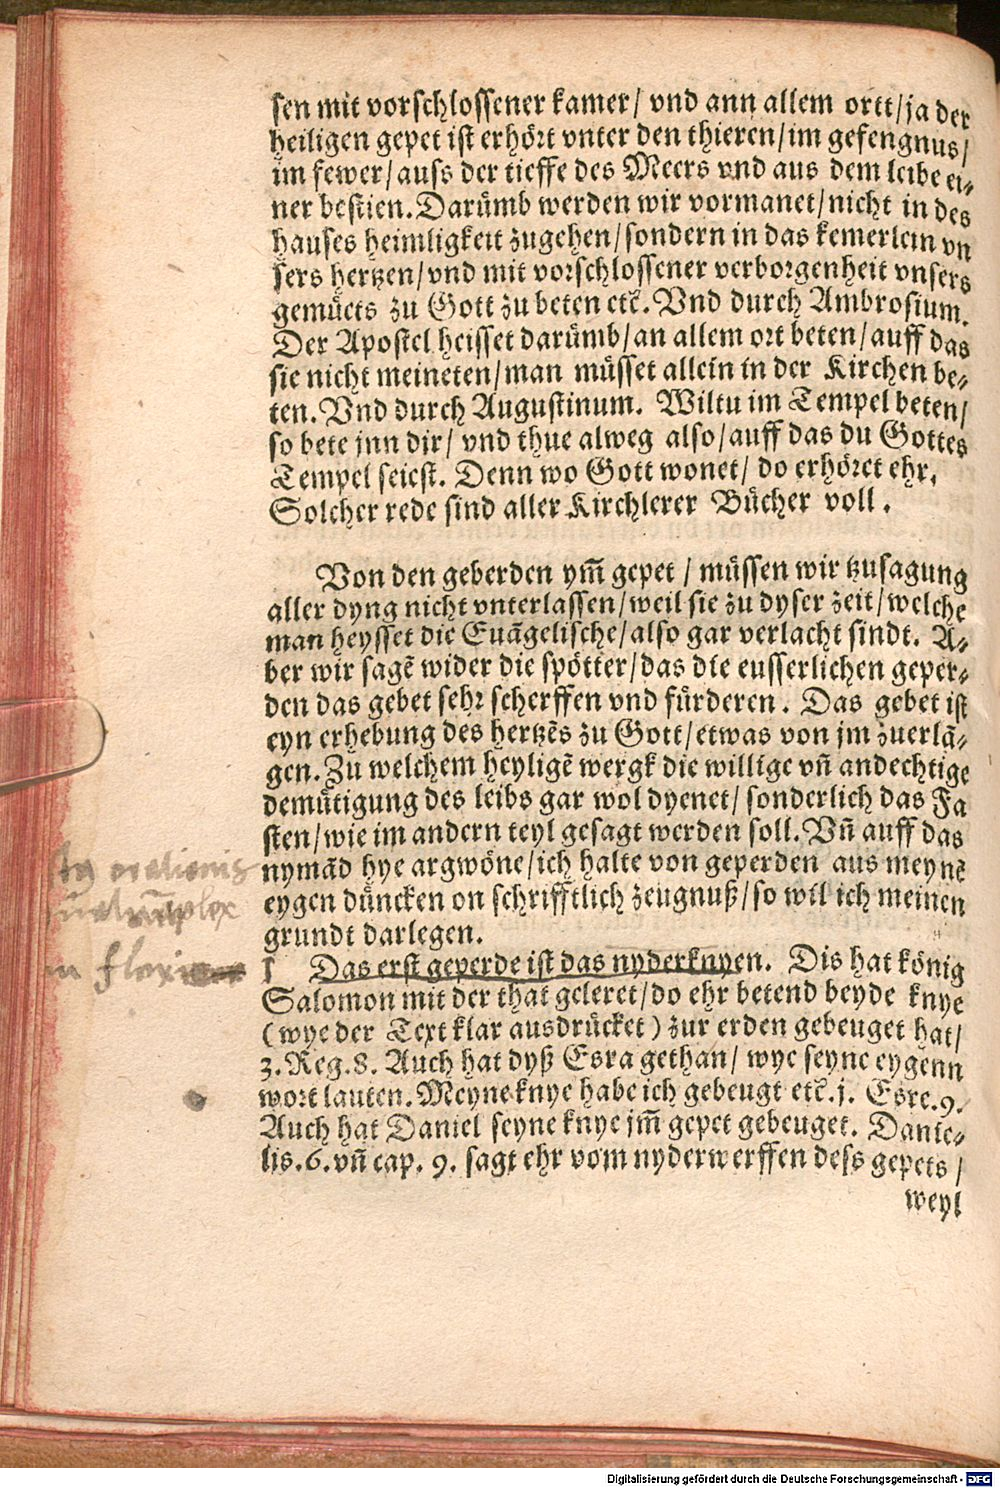 sen mit vorschlossener kamer/ vnd ann allem ortt/ja der
heiligen gepet ist erhört vnter den thieren/im gefengnus/
im fewer/auss der tieffe des Meers vnd aus dem leibe ei-
ner bestien. Darümb werden wir vormanet/nicht in des
hauses heimligkeit zugehen/sondern in das kemerlein vn
sers hertzen/vnd mit vorschlossener verborgenheit vnsers
gemüets zu Gott zu beten etc̃. Vnd durch Ambrosium.
Der Apostel heisset darümb/an allem ort beten/auff das
sie nicht meineten/man müsset allein in der Kirchen be-
ten. Vnd durch Augustinum. Wiltu im Tempel beten/
so bete inn dir/ vnd thue alweg also/auff das du Gottes
Tempel seiest. Denn wo Gott wonet/ do erhöret ehr.
Solcher rede sind aller Kirchlerer Bücher voll.
Von den geberden ym̃ gepet / müssen wir tzusagung
aller dyng nicht vnterlassen/weil sie zu dyser zeit/welche
man heysset die Euãgelische/also gar verlacht sindt. A-
ber wir sagẽ wider die spötter/das die eusserlichen geper-
den das gebet sehr scherffen vnd fürderen. Das gebet ist
eyn erhebung des hertzẽs zu Gott/etwas von jm zuerlã-
gen. Zu welchem heyligẽ wergk die willige vñ andechtige
demütigung des leibs gar wol dyenet/ sonderlich das Fa
sten/wie im andern teyl gesagt werden soll. Vñ auff das
nymãd hye argwöne/ich halte von geperden aus meynẽ
eygen düncken on schrifftlich zeugnuß/so wil ich meinen
grundt darlegen.
Das erst geperde ist das nyderknyen. Dis hat könig
Salomon mit der that geleret/do ehr betend beyde knye
(wye der Text klar ausdrücket) zur erden gebeuget hat/
3. Reg. 8. Auch hat dyß Esra gethan/ wye seyne eygenn
wort lauten. Meyne knye habe ich gebeugt etc̃. j. Esre. 9.
Auch hat Daniel seyne knye jm̃ gepet gebeuget. Danie-
lis. 6. vñ cap. 9. sagt ehr vom nyderwerffen dess gepets /
weyl
orationis
in
Digitalisierung gefördert durch die Deutsche Forschungsgemeinschaft - DFG